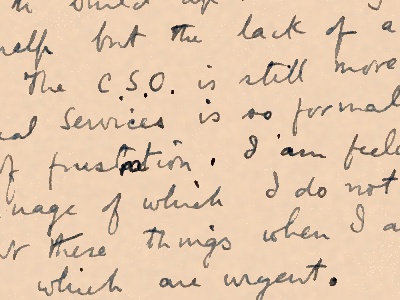 help but the lack of a
The C.S.O. is still more
Services is so formal
of frustration. I am feel
which I do not
these things when I a
which are urgent.